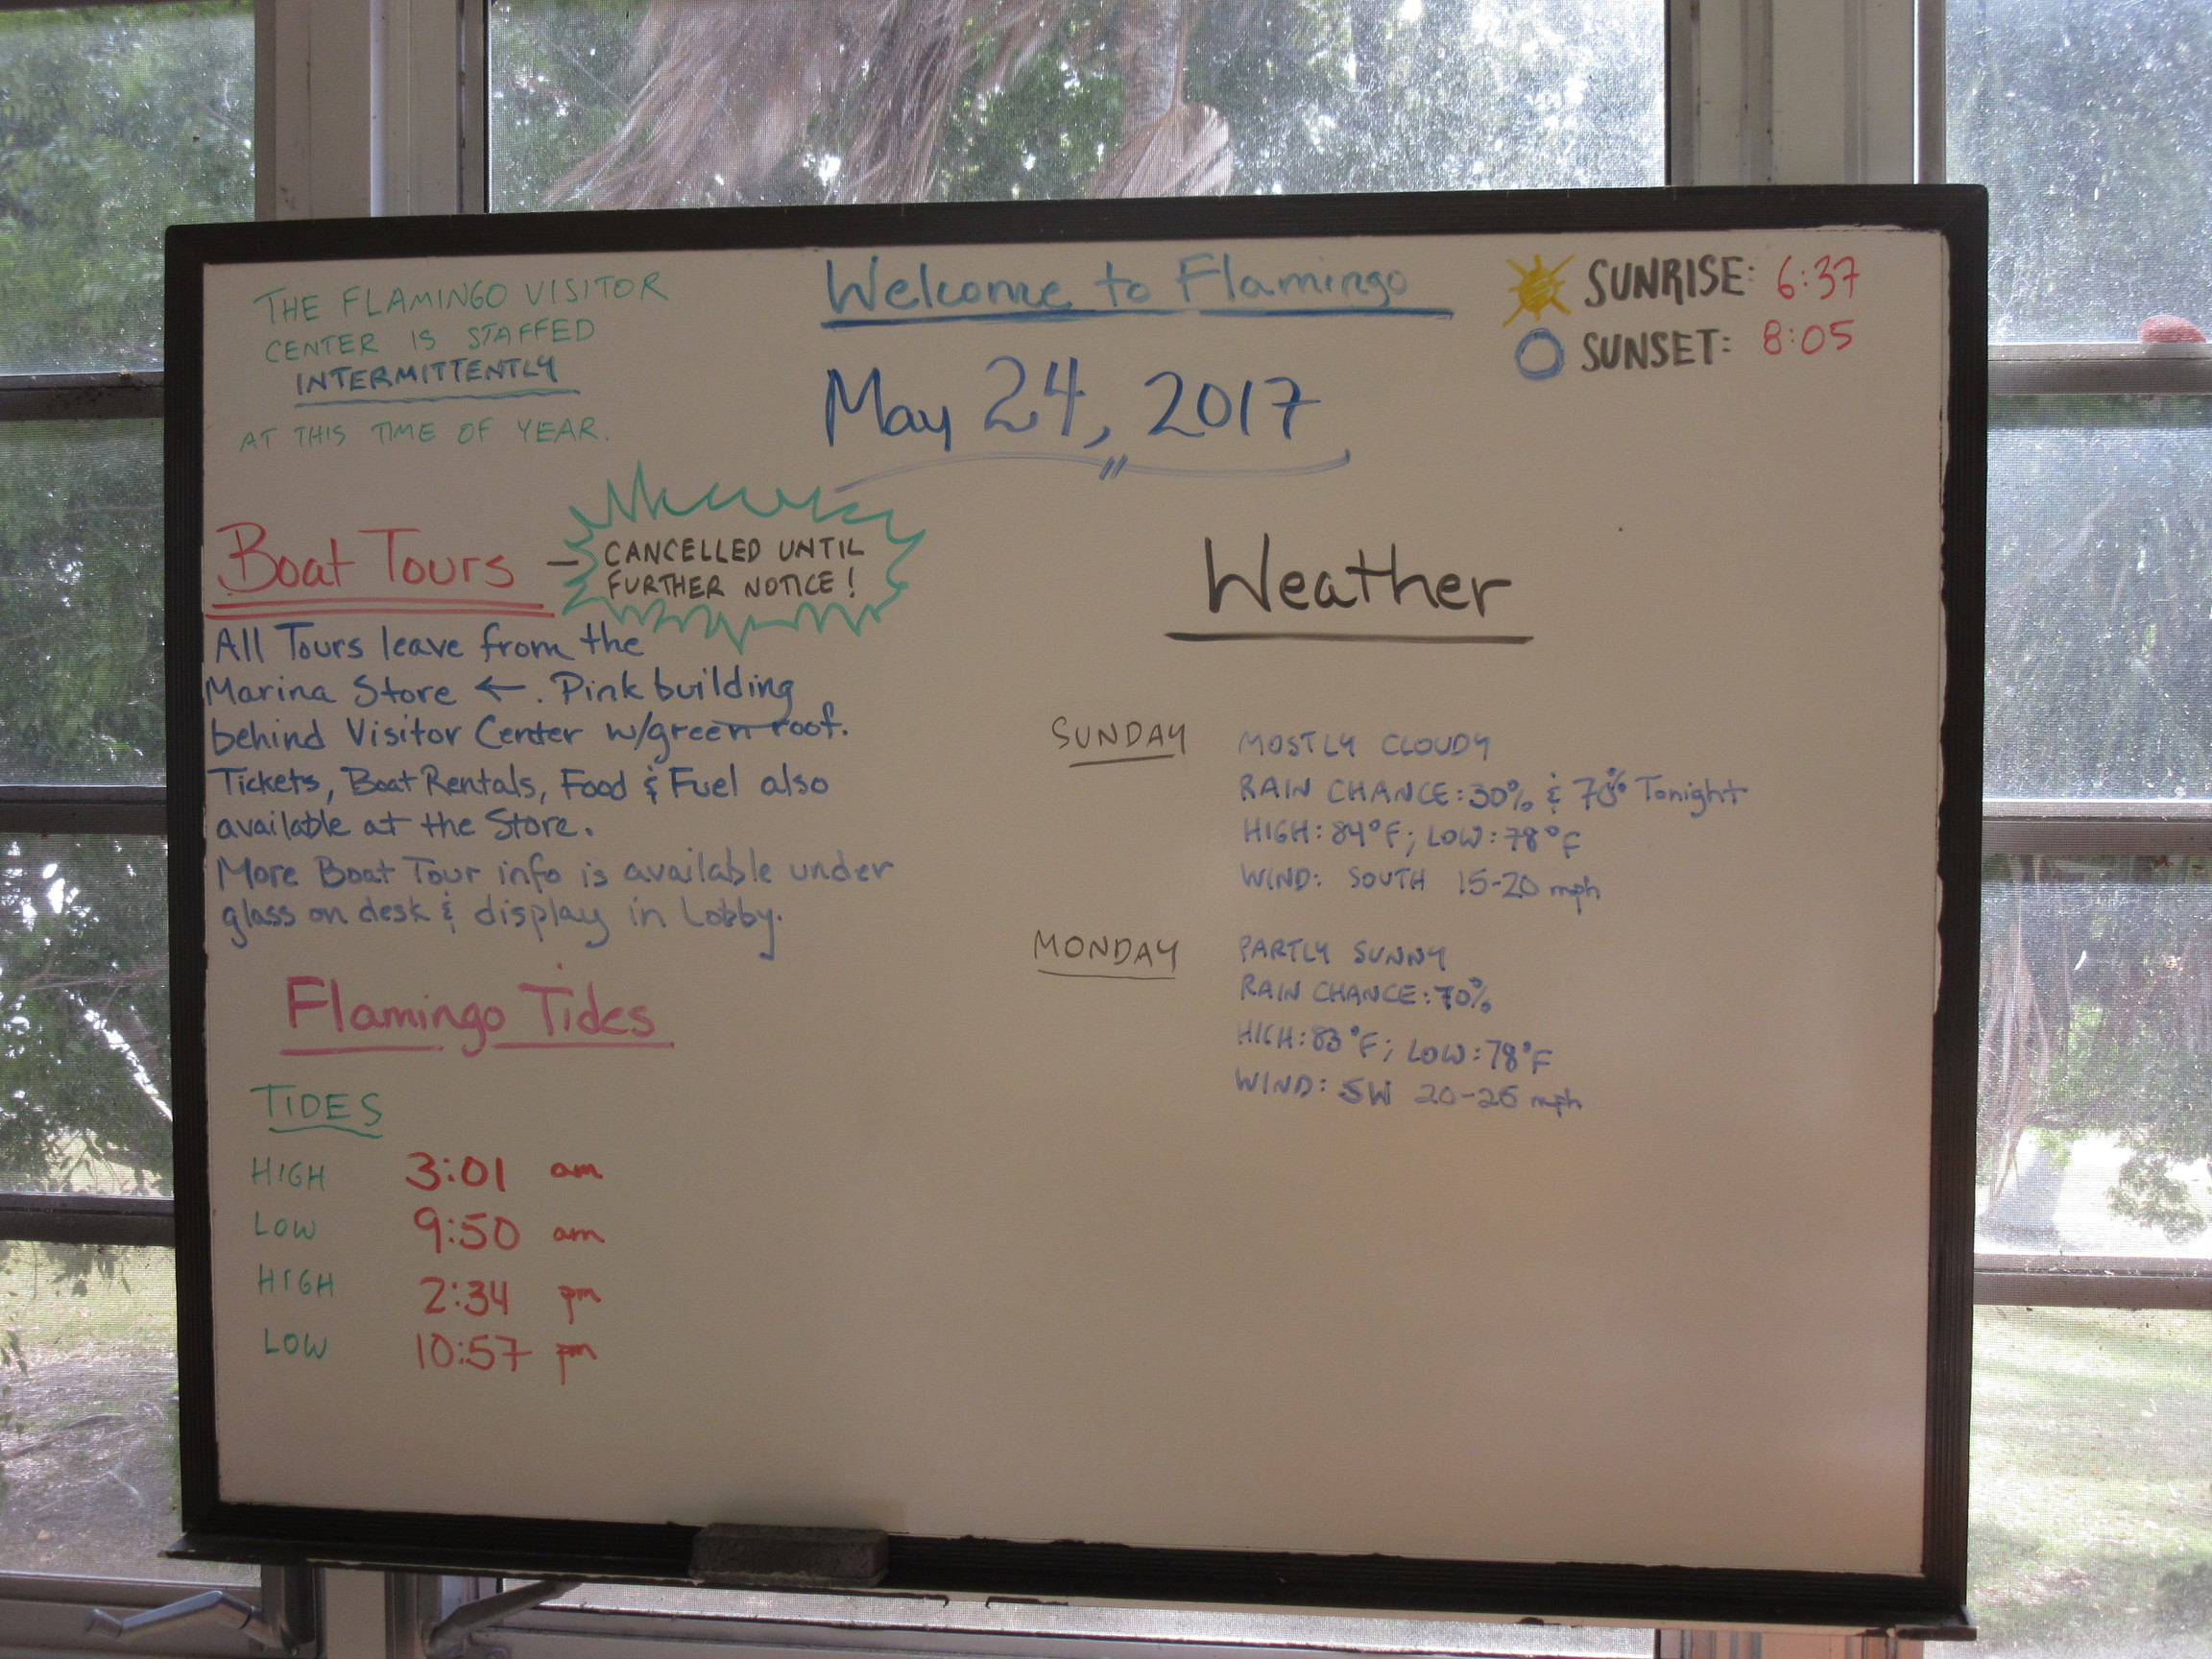 THE FLAMINGO VISITOR
CENTER IS STAFFED
INTERMITTENTLY
AT THIS TIME OF YEAR.
Welcome to Flamingo
May 24, 2017
SUNRISE: 6:37
SUNSET: 8:05
Boat Tours – CANCELLED UNTIL
FURTHER NOTICE!
All Tours leave from the
Marina Store ←. Pink building
behind Visitor Center w/green roof.
Tickets, Boat Rentals, Food & Fuel also
available at the Store.
More Boat Tour info is available under
glass on desk & display in Lobby.
Flamingo Tides
TIDES
HIGH 3:01 am
LOW 9:50 am
HIGH 2:34 pm
LOW 10:57 pm
Weather
SUNDAY MOSTLY CLOUDY
RAIN CHANCE: 30% & 70% Tonight
HIGH: 84°F; LOW: 78°F
WIND: SOUTH 15-20 mph
MONDAY PARTLY SUNNY
RAIN CHANCE: 70%
HIGH: 83°F; LOW: 78°F
WIND: SW 20-25 mph